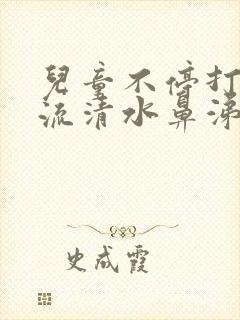 兒童不停打
流清水鼻涕
史成霞